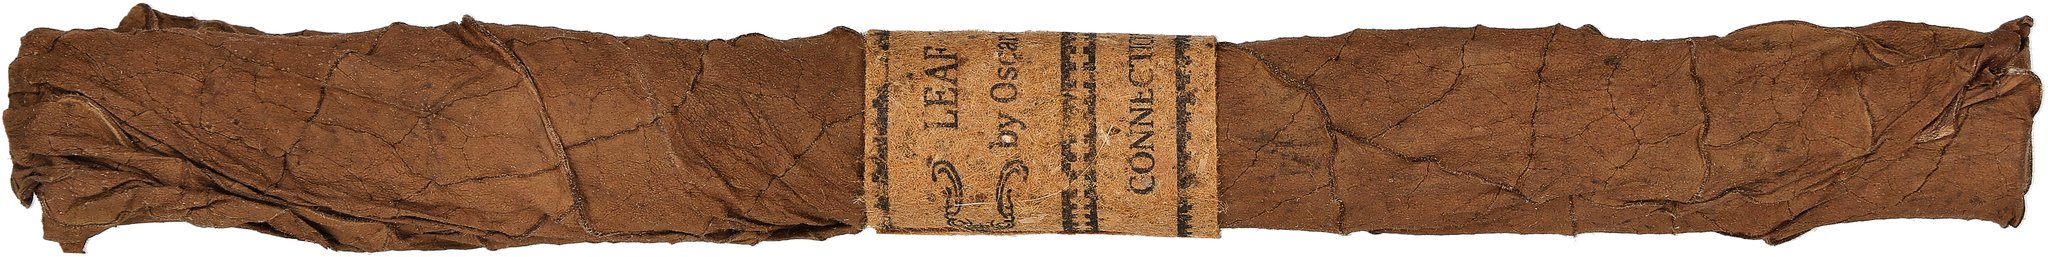 LEAF
by Oscar
CONNECTIC